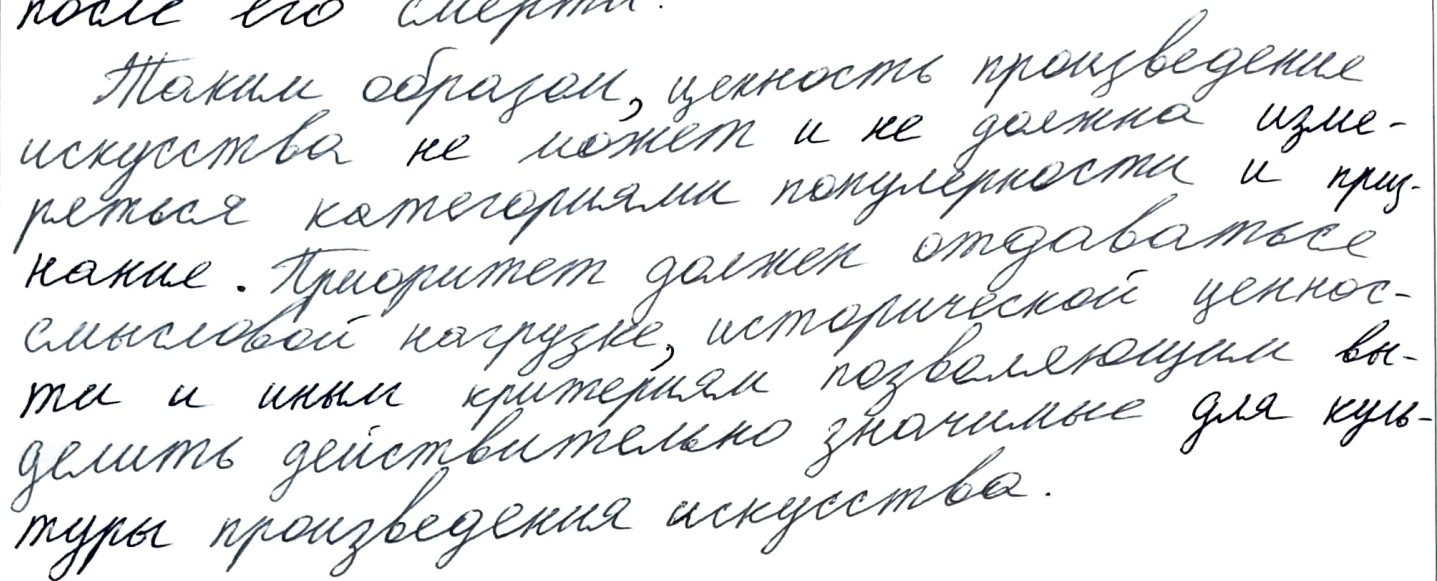 после его смерти.
Таким образом, ценность произведение
искусства не может и не должна изме-
ряться категориями популярности и приз-
нание. Приоритет должен отдаваться
смысловой нагрузке, исторической ценнос-
ти и иным критериям позволяющим вы-
делить действительно значимые для куль-
туры произведения искусства.